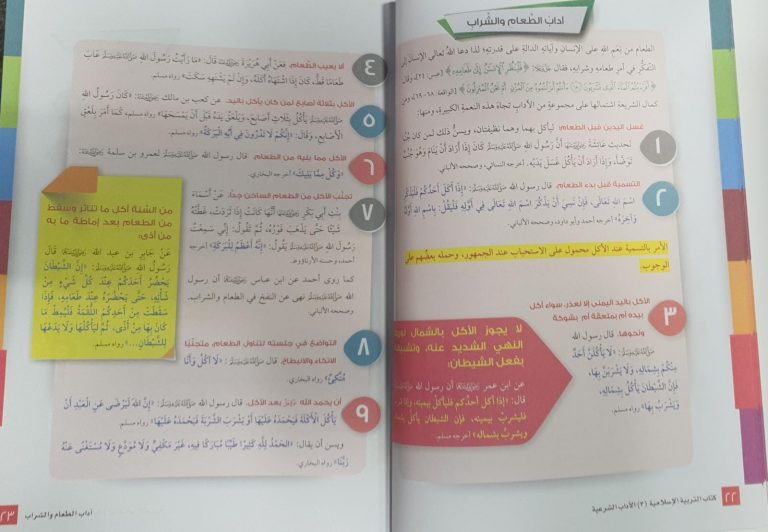 آدابُ الطَّعام والشَّراب
الطعام من نِعَم الله على الإنسان وآياتِه الدالةِ على قدرتِه؛ لذا دعا اللهُ تعالى الإنسانَ إلى
التفكُّرِ في أمرِ طعامِه وشرابِه، فقال ﷻ: ﴿فَلْيَنظُرِ الْإِنسَانُ إِلَىٰ طَعَامِهِ﴾ [عبس: ٢٤]، وقال
﴿أَفَرَأَيْتُمُ الْمَاءَ الَّذِي تَشْرَبُونَ ۝ أَأَنتُمْ أَنزَلْتُمُوهُ مِنَ الْمُزْنِ أَمْ نَحْنُ الْمُنزِلُونَ﴾ [الواقعة: ٦٨-٦٩]، ومن
كمال الشريعة اشتمالها على مجموعةٍ من الآداب تجاهَ هذه النعمةِ الكبيرة، ومنها:
١
غسل اليدين قبل الطعام: ليأكل بهما وهما نظيفتان، ويسنُّ ذلك لمن كان جُنُبًا
لحديث عائشةَ رضي الله عنها أنَّ رسولَ الله ﷺ كَانَ إِذَا أَرَادَ أَنْ يَنَامَ وَهُوَ جُنُبٌ
تَوَضَّأَ، وَإِذَا أَرَادَ أَنْ يَأْكُلَ غَسَلَ يَدَيْهِ. أخرجه النسائي، وصححه الألباني
٢
التسمية قبل بدء الطعام. قال رسول الله ﷺ: «إِذَا أَكَلَ أَحَدُكُمْ فَلْيَذْكُرِ
اسْمَ اللهِ تَعَالَى، فَإِنْ نَسِيَ أَنْ يَذْكُرَ اسْمَ اللهِ تَعَالَى فِي أَوَّلِهِ فَلْيَقُلْ: بِاسْمِ اللهِ أَوَّلَهُ
وَآخِرَهُ» أخرجه أحمد وأبو داود، وصححه الألباني.
الأمر بالتسمية عند الأكل محمول على الاستحباب عند الجمهور، وحمله بعضُهم على
الوجوب.
٣
الأكل باليد اليمنى إلا لعذر، سواء أكل
بيده أم بملعقة أم بشوكة
ونحوها. قال رسول الله
ﷺ: «لَا يَأْكُلَنَّ أَحَدٌ
مِنْكُمْ بِشِمَالِهِ، وَلَا يَشْرَبَنَّ بِهَا،
فَإِنَّ الشَّيْطَانَ يَأْكُلُ بِشِمَالِهِ،
وَيَشْرَبُ بِهَا» رواه مسلم.
لا يجوز الأكل بالشمال
النهي الشديد عنه، وتشبيه
بفعل الشيطان؛
عن ابن عمر أن رسول الله
قال: «إذا أكل أحدُكم فليأكلْ بيمينه، وإذا
فليشربْ بيمينه، فإن الشيطان يأكلُ
ويشربُ بشماله» أخرجه مسلم.
٢٢
كتاب التربية الإسلامية (٣) الآداب الشرعية
٤
ألا يعيب الطعام. فعَنْ أَبِي هُرَيْرَةَ رضي الله عنه قَالَ: «مَا رَأَيْتُ رَسُولَ اللهِ ﷺ عَابَ
طَعَامًا قَطُّ، كَانَ إِذَا اشْتَهَاهُ أَكَلَهُ، وَإِنْ لَمْ يَشْتَهِهِ سَكَتَ» رواه مسلم.
٥
الأكل بثلاثة أصابع لمن كان يأكل باليد. عن كعب بن مالك رضي الله عنه: «كَانَ رَسُولُ اللهِ
ﷺ يَأْكُلُ بِثَلَاثِ أَصَابِعَ، وَيَلْعَقُ يَدَهُ قَبْلَ أَنْ يَمْسَحَهَا» رواه مسلم، كَمَا أَمَرَ بِلَعْقِ
الْأَصَابِعِ، وَقَالَ: «إِنَّكُمْ لَا تَدْرُونَ فِي أَيِّهِ الْبَرَكَةُ» رواه مسلم.
٦
الأكل مما يليه من الطعام. قال رسول الله ﷺ لعمرو بن سلمة رضي الله عنه:
«وَكُلْ مِمَّا يَلِيكَ» أخرجه البخاري.
٧
تجنُّب الأكل من الطعام الساخن جدًّا. عَنْ أَسْمَاءَ
بِنْتِ أَبِي بَكْرٍ رضي الله عنها أَنَّهَا كَانَتْ إِذَا ثَرَدَتْ، غَطَّتْهُ
شَيْئًا حَتَّى يَذْهَبَ فَوْرُهُ، ثُمَّ تَقُولُ: إِنِّي سَمِعْتُ
رَسُولَ اللهِ ﷺ يَقُولُ: «إِنَّهُ أَعْظَمُ لِلْبَرَكَةِ» أخرجه
أحمد، وحسنه الأرناؤوط.
كما روى أحمد عن ابن عباس رضي الله عنهما أن رسول
الله ﷺ نهى عن النفخ في الطعام والشراب.
وصححه الألباني.
من السُّنة أكل ما تناثر وسقط
من الطعام بعد إماطة ما به
من أذى:
عَنْ جَابِرِ بن عبد الله رضي الله عنه قَالَ
رَسُولُ اللهِ ﷺ: «إِنَّ الشَّيْطَانَ
يَحْضُرُ أَحَدَكُمْ عِنْدَ كُلِّ شَيْءٍ مِنْ
شَأْنِهِ، حَتَّى يَحْضُرَهُ عِنْدَ طَعَامِهِ، فَإِذَا
سَقَطَتْ مِنْ أَحَدِكُمُ اللُّقْمَةُ فَلْيُمِطْ مَا
كَانَ بِهَا مِنْ أَذًى، ثُمَّ لْيَأْكُلْهَا وَلَا يَدَعْهَا
لِلشَّيْطَانِ...» رواه مسلم.
٨
التواضع في جلسته لتناول الطعام، متجنِّبًا
الاتكاء والانبطاح. قال ﷺ: «لَا آكُلُ وَأَنَا
مُتَّكِئٌ» رواه البخاري.
٩
أن يحمد الله ﷿ بعد الأكل. قال رسول الله ﷺ: «إِنَّ اللهَ لَيَرْضَى عَنِ الْعَبْدِ أَنْ
يَأْكُلَ الْأَكْلَةَ فَيَحْمَدَهُ عَلَيْهَا أَوْ يَشْرَبَ الشَّرْبَةَ فَيَحْمَدَهُ عَلَيْهَا» رواه مسلم.
ويسن أن يقال: «الْحَمْدُ لِلَّهِ كَثِيرًا طَيِّبًا مُبَارَكًا فِيهِ، غَيْرَ مَكْفِيٍّ وَلَا مُوَدَّعٍ وَلَا مُسْتَغْنًى عَنْهُ
رَبَّنَا» رواه البخاري.
آداب الطعام والشراب
٢٣